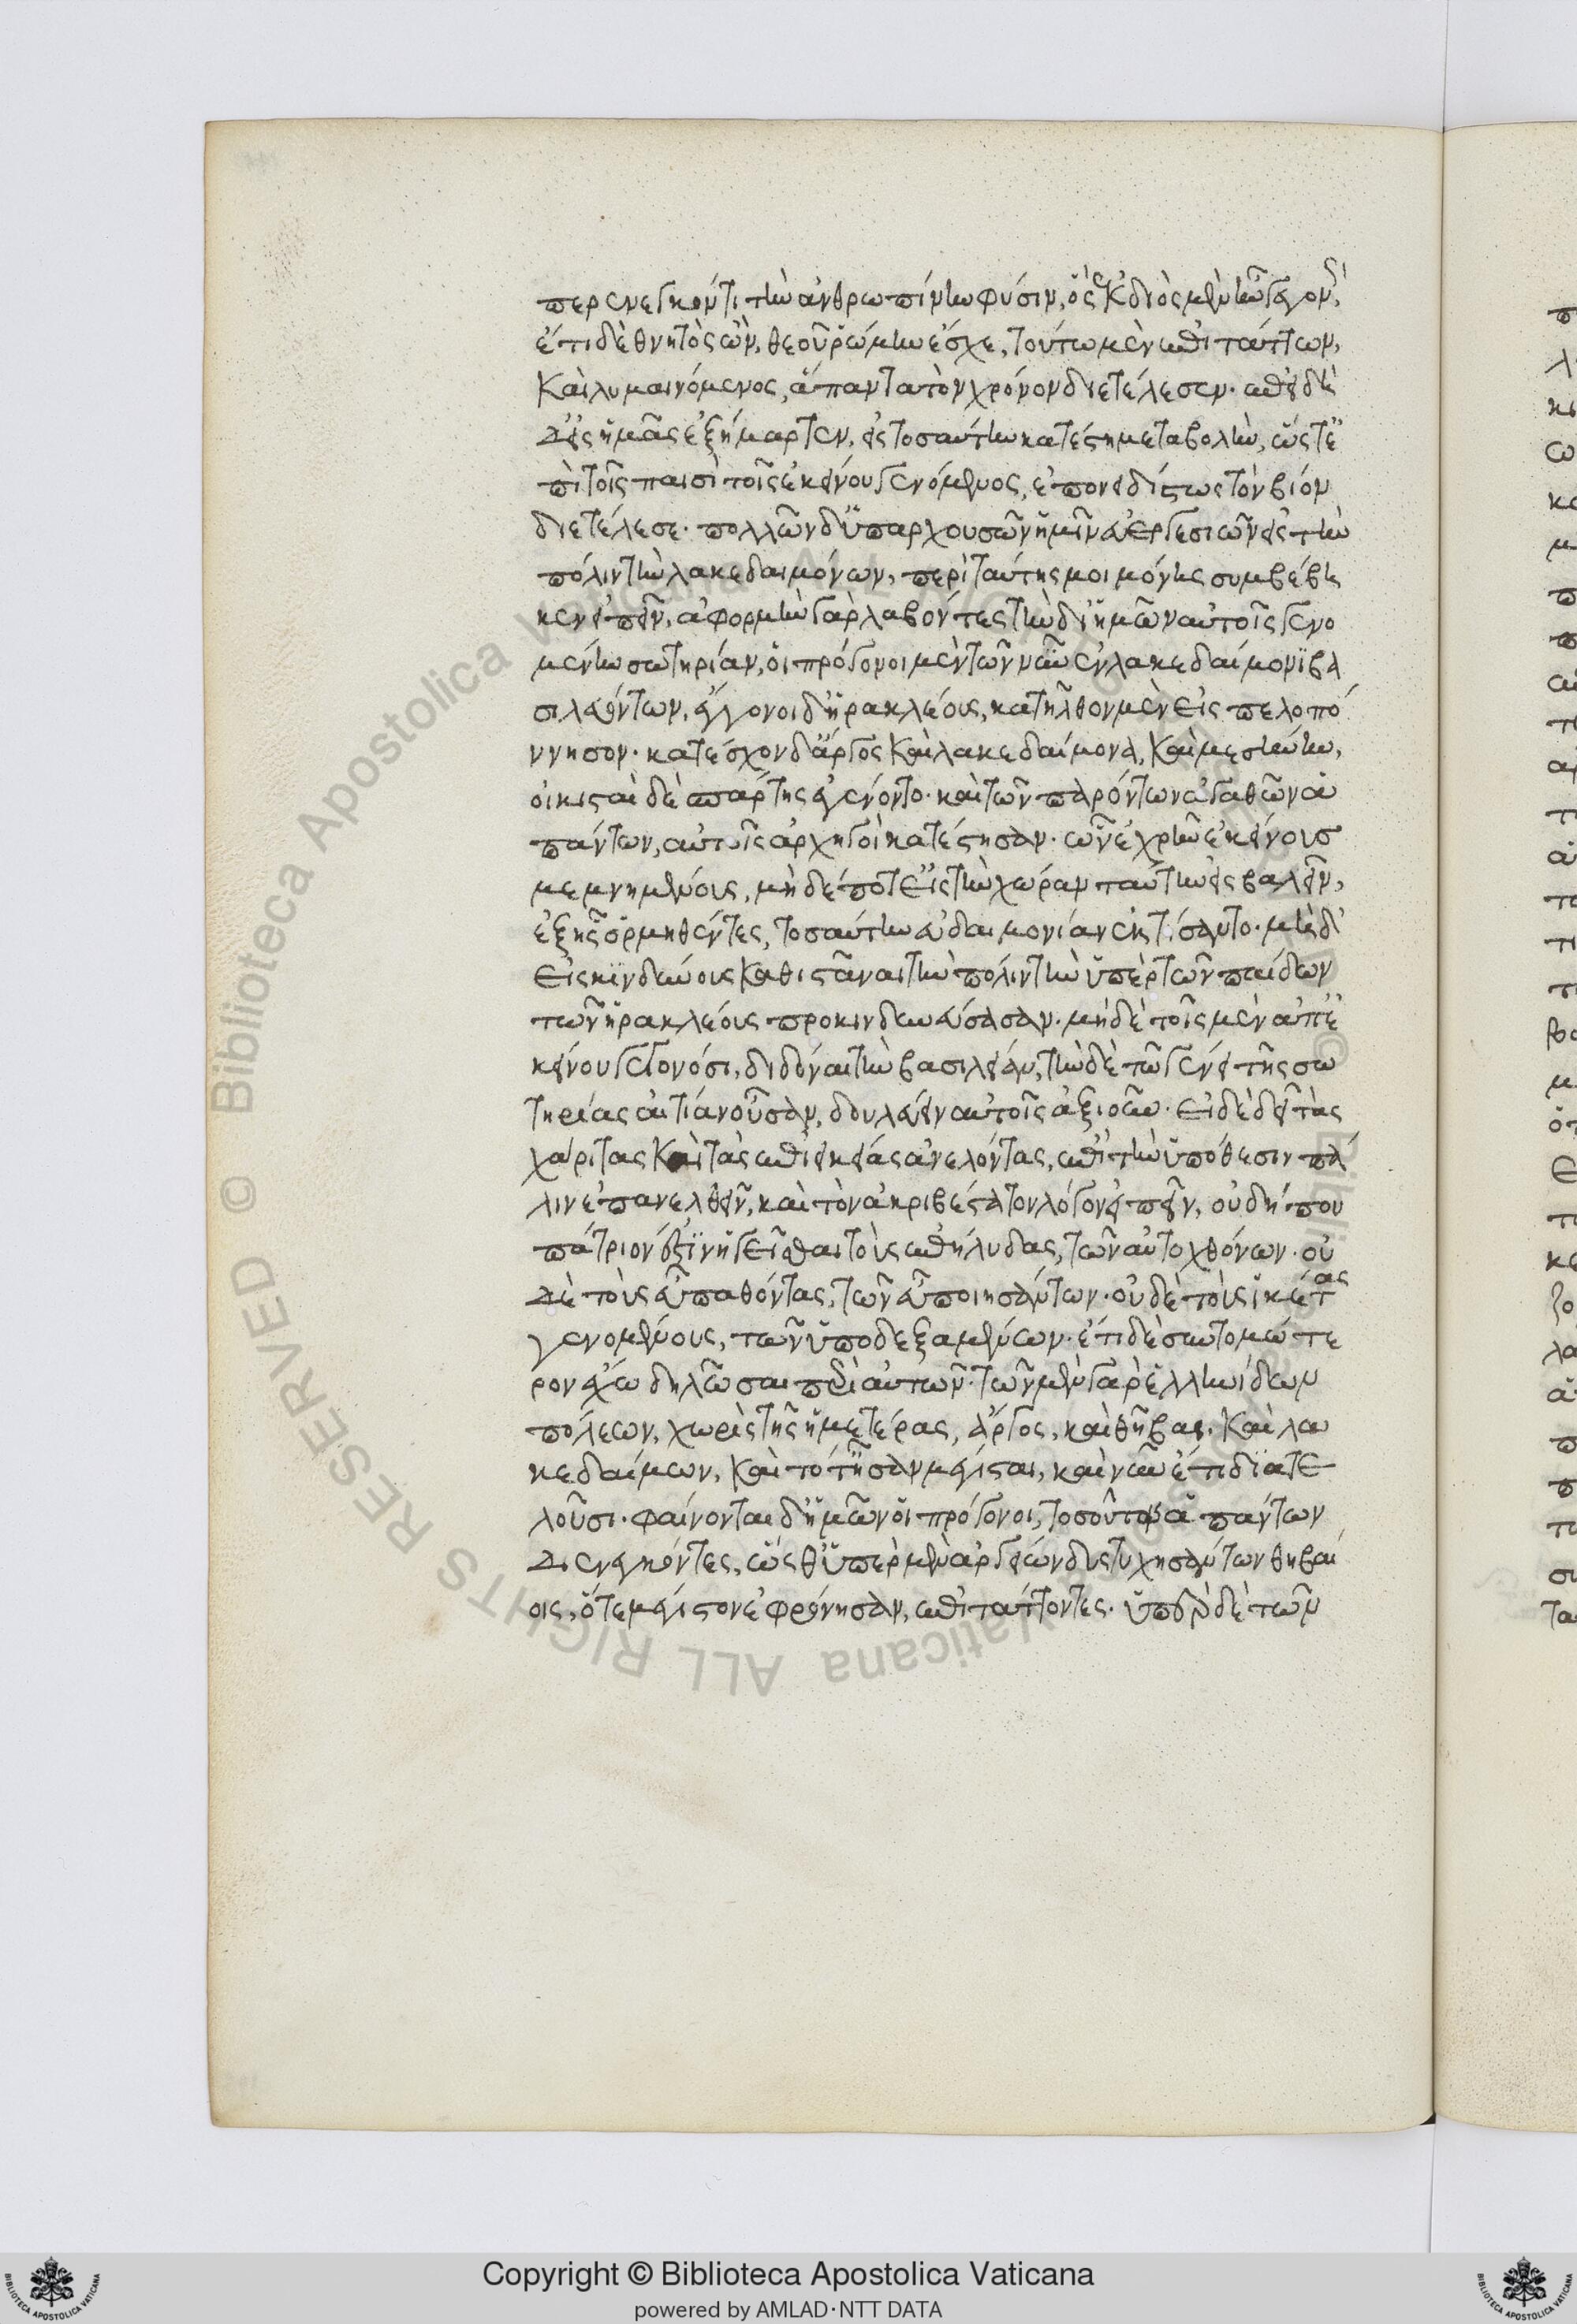 περενεγκόντι τὴν ἀνθρωπίνην φύσιν, ὃς ἐκ διὸς μὲν γεγονὼς,
ἔτι δὲ θνητὸς ὢν, θεοῦ ῥώμην ἔσχε, τούτω μὲν ἐπιτάττων,
καὶ λυμαινόμενος, ἅπαντα τὸν χρόνον διετέλεσεν. ἐπειδὴ
δ' εἰς ἡμᾶς ἐξήμαρτεν, εἰς τοσαύτην κατέστη μεταβολὴν, ὥστε
πὶ τοῖς παισὶ τοῖς ἐκείνου γενόμενος, ἐπονειδίστως τὸν βίον
διετέλεσε. πολλῶν δ' ὑπαρχουσῶν ἡμῖν εὐεργεσιῶν εἰς τὴν
πόλιν τὴν λακεδαιμόνων, περὶ ταύτης μοι μόνης συμβέβη
κεν εἰπεῖν, ἀφορμὴν γὰρ λαβόντες τὴν δι' ἡμῶν αὐτοῖς γενο
μένην σωτηρίαν, οἱ πρόγονοι μὲν τῶν νῦν ἐν λακεδαίμονι βα
σιλευόντων, ἔκγονοι δ' ἡρακλέους, κατῆλθον μὲν εἰς πελοπό
ννησον. κατέσχον δ' ἄργος καὶ λακεδαίμονα, καὶ μεσήνην,
οἰκισταὶ δὲ σπάρτης ἐγένοντο. καὶ τῶν παρόντων ἀγαθῶν ἁ
πάντων, αὐτοῖς ἀρχηγοὶ κατέστησαν. ὧν ἐχρῆν ἐκείνους
μεμνημένους, μηδέποτ' εἰς τὴν χώραν ταύτην εἰσβαλεῖν,
ἐξ ἧς ὁρμηθέντες, τοσαύτην εὐδαιμονίαν ἐκτίσαντο. μὴ δ'
εἰς κινδύνους καθιστάναι τὴν πόλιν τὴν ὑπὲρ τῶν παίδων
τῶν ἡρακλέους προκινδυνεύσασαν. μὴ δὲ τοῖς μὲν ἀπ' ἐ
κείνου γεγονόσι, διδόναι τὴν βασιλείαν, τὴν δὲ τῶ γένει τῆς σω
τηρίας αἰτίαν οὖσαν, δουλεύειν αὐτοῖς ἀξιοῦν. εἰ δὲ δεῖ τὰς
χάριτας καὶ τὰς ἐπιεικείας ἀνελόντας, ἐπὶ τὴν ὑπόθεσιν πά
λιν ἐπανελθεῖν, καὶ τὸν ἀκριβέστατον λόγον εἰπεῖν, οὐ δή που
πάτριόν ἐστιν ἡγεῖσθαι τοὺς ἐπήλυδας, τῶν αὐτοχθόνων. οὐ
δὲ τοὺς εὖ παθόντας, τῶν εὖ ποιησάντων. οὐ δὲ τοὺς ἱκέτας
γενομένους, τῶν ὑποδεξαμένων. ἔτι δὲ συντομώτε
ρον ἔχω δηλῶσαι περὶ αὐτῶν. τῶν μὲν γὰρ ἑλληνίδων
πόλεων, χωρὶς τῆς ἡμετέρας, ἄργος, καὶ θῆβαι. καὶ λα
κεδαίμων, καὶ τότ' ἦσαν μέγισται, καὶ νῦν ἔτι διατε
λοῦσι. φαίνονται δ' ἡμῶν οἱ πρόγονοι, τοσοῦτον ἁπάντων
διενεγκόντες, ὥσθ' ὑπὲρ μὲν ἀργείων δυστυχησάντων θηβαί
οις, ὅτε μέγιστον ἐφρόνησαν, ἐπιτάττοντες. ὑπὲρ δὲ τῶν